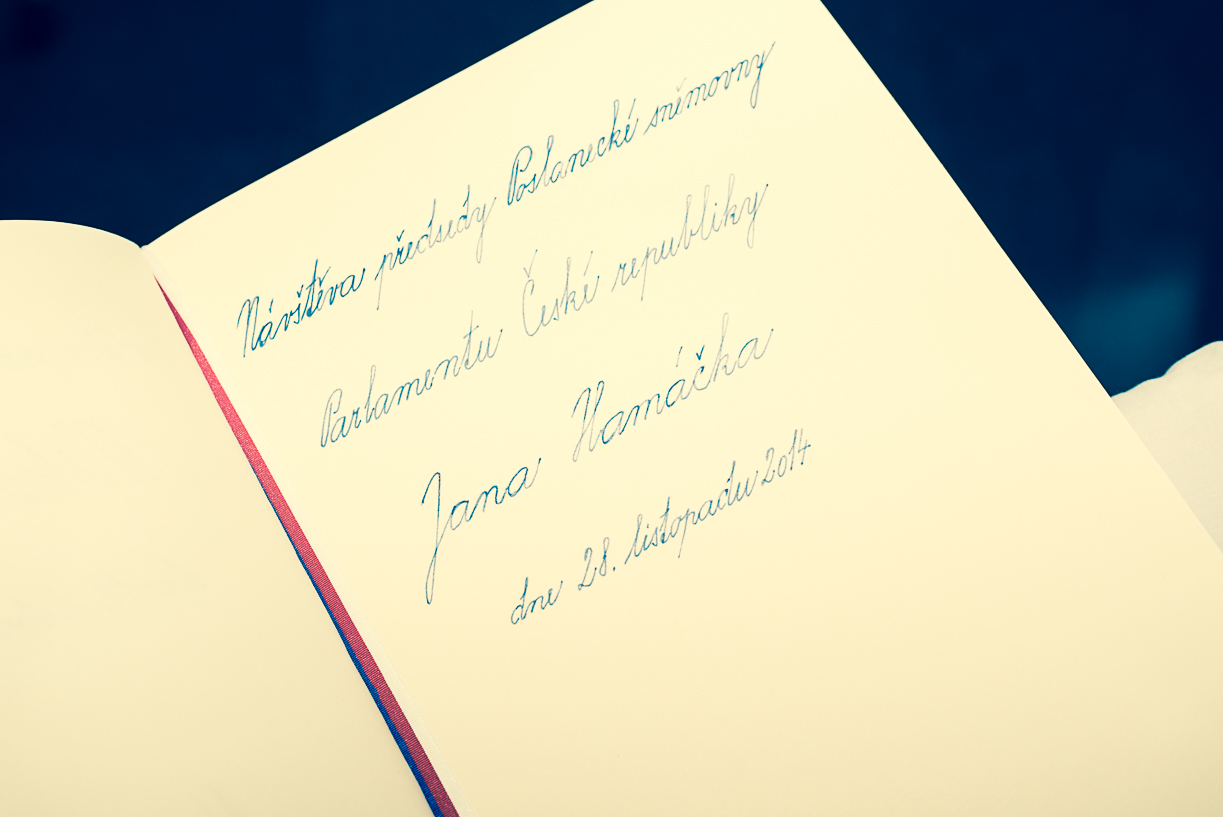 Návštěva předsedy Poslanecké sněmovny
Parlamentu České republiky
Jana Hamáčka
dne 28. listopadu 2014